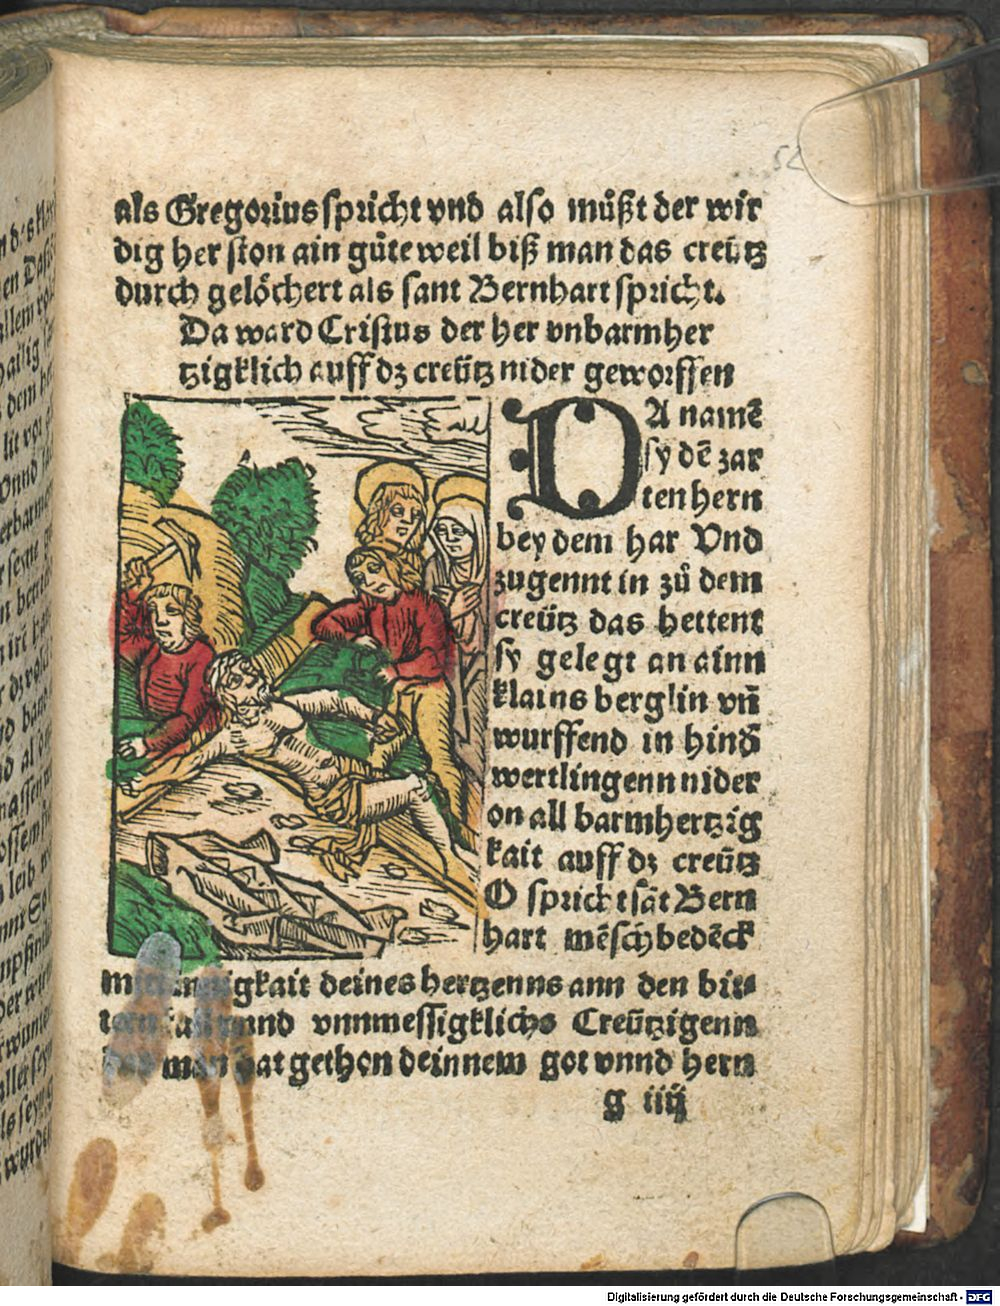 52
als Gregorius spricht vnd also můßt der wir
dig her ston ain gůte weil biß man das creütz
durch gelöchert als sant Bernhart spricht.
Da ward Cristus der her vnbarmher
tzigklich auff dz creütz nider geworffen
DA namē
sy dē zar
ten hern
bey dem har Vnd
zugennt in zů dem
creütz das hettent
sy gelegt an ainn
klains berglin vn̄
wurffend in hind
wertlingenn nider
on all barmhertzig
kait auff dz creütz
O spricht sāt Bern
hart mēsch bedēck
deines hertzenns ann den bit⸗
vnnd vnnmessigklichs Creützigenn
man hat gethon deinnem got vnnd hern
g iiij
Digitalisierung gefördert durch die Deutsche Forschungsgemeinschaft - DFG